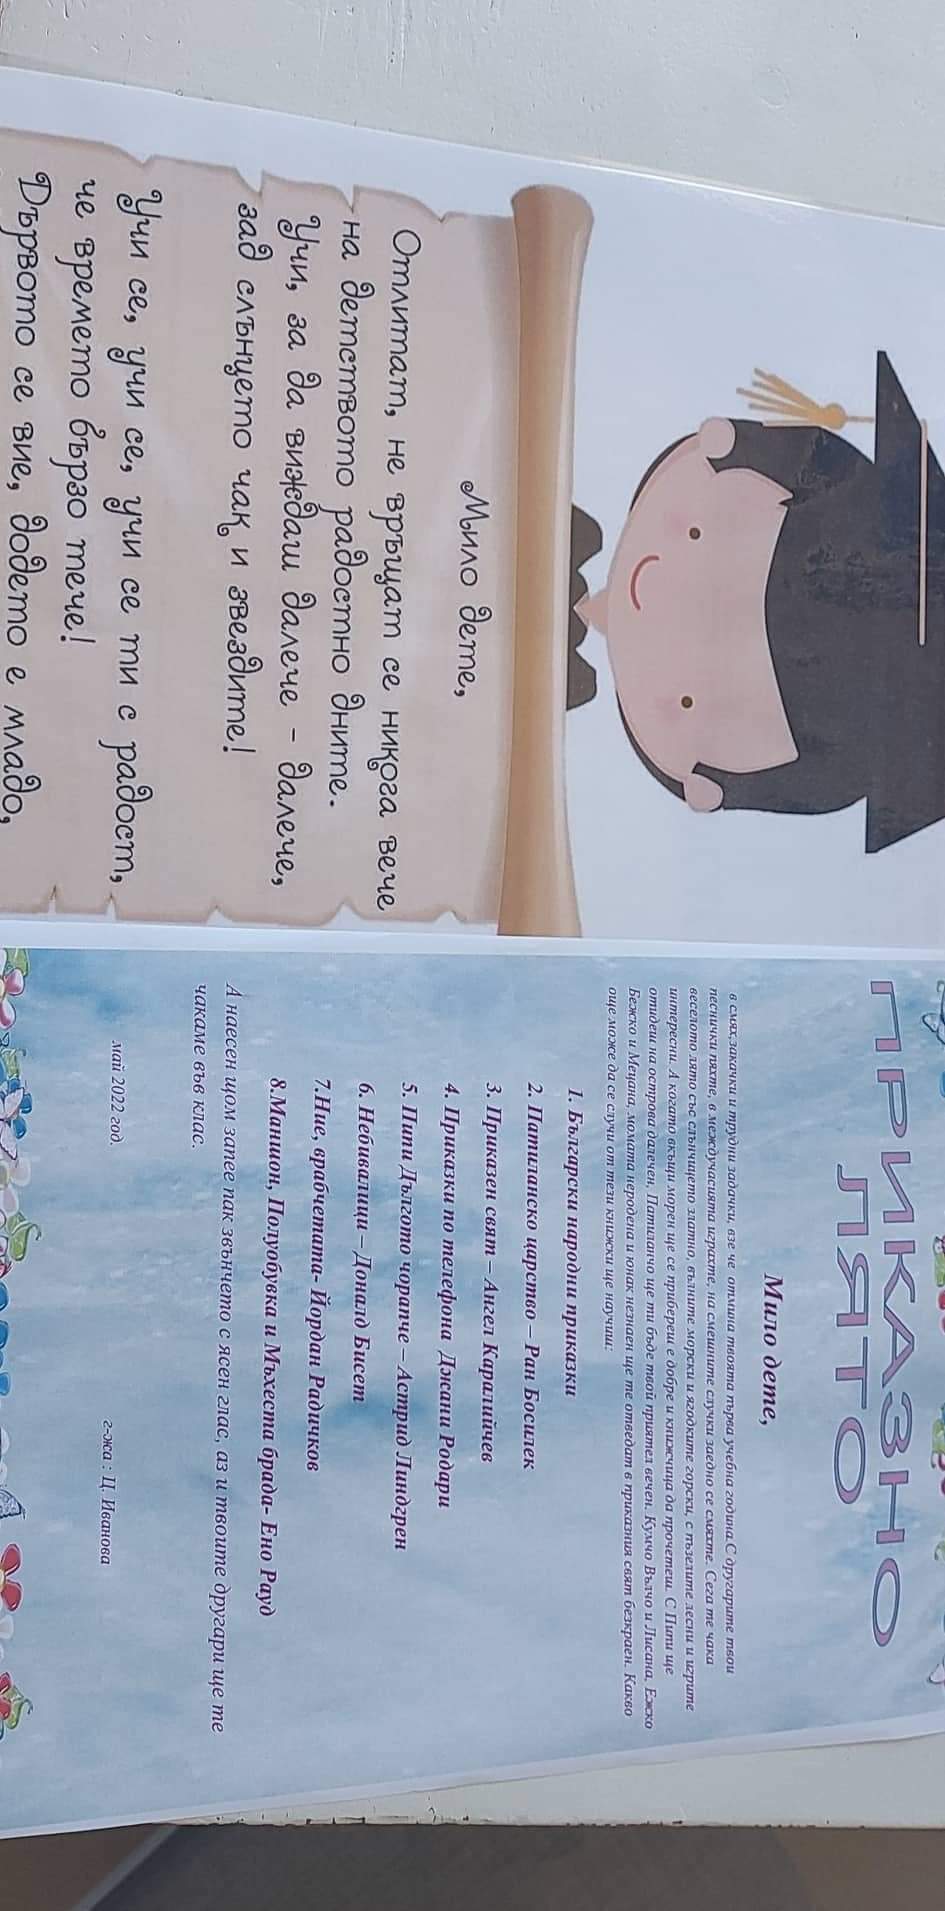 Мило дете,
Отлитат, не връщат се никога вече
на детството радостно дните.
Учи, за да виждаш далече - далече,
зад слънцето чак и звездите!
Учи се, учи се, учи се ти с радост,
че времето бързо тече!
Дървото се вие, додето е младо,
ПРИКАЗНО
ЛЯТО
Мило дете,
в смях,закачки и трудни задачки, взе че отмина твоята първа учебна година.С другарите твои
песнички пяхте, в междучасията играхте, на смешните случки заедно се смяхте. Сега те чака
веселото лято със слънчицето златно, вълните морски и ягодките горски, с пъзелите лесни и игрите
интересни. А когато вкъщи морен ще се прибереш е добре и книжчица да прочетеш. С Пипи ще
отидеш на острова далечен, Патиланчо ще ти бъде твой приятел вечен. Кумчо Вълчо и Лисана, Ежко
Бежко и Мецана, момата неродена и юнак незнаен ще те отведат в приказния свят безкраен. Какво
още може да се случи от тези книжки ще научиш:
1. Български народни приказки
2. Патиланско царство – Ран Босилек
3. Приказен свят – Ангел Каралийчев
4. Приказки по телефона Джани Родари
5. Пипи Дългото чорапче – Астрид Линдгрен
6. Небивалици – Доналд Бисет
7.Ние, врабчетата- Йордан Радичков
8.Маншон, Полуобувка и Мъхеста брада- Ено Рауд
А наесен щом запее пак звънчето с ясен глас, аз и твоите другари ще те
чакаме във клас.
май 2022 год. г-жа : Ц. Иванова